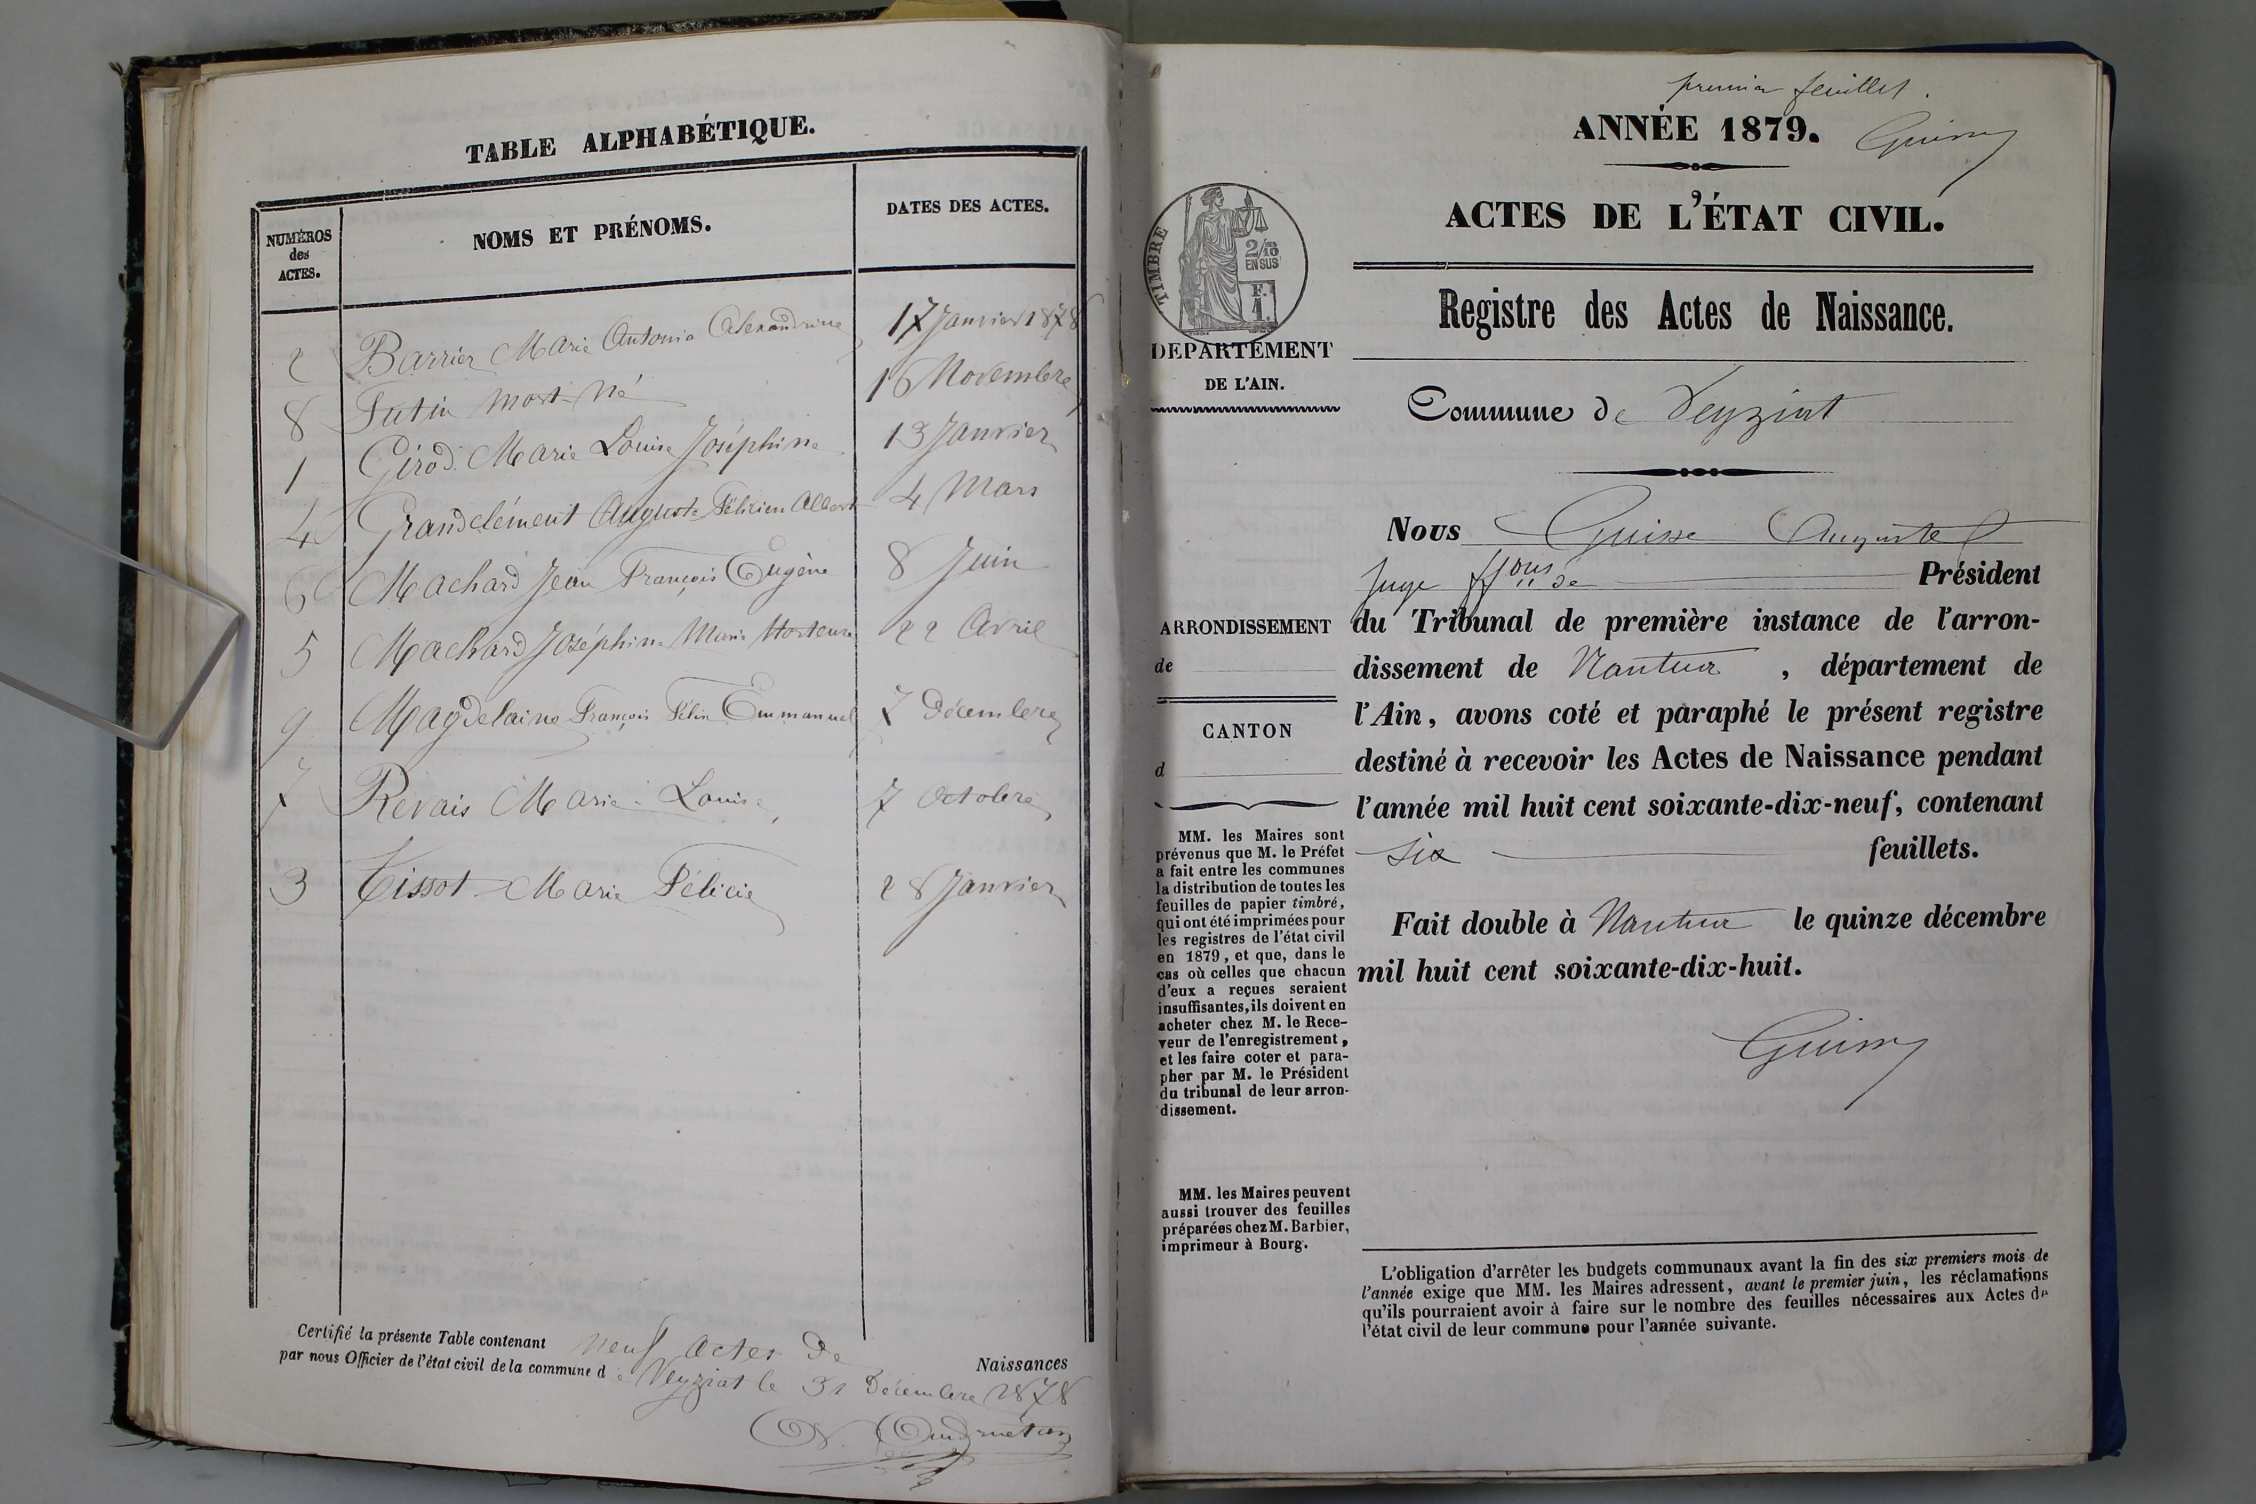 TABLE ALPHABÉTIQUE.
NUMÉROS des ACTES.
NOMS ET PRÉNOMS.
DATES DES ACTES.
2 Barrier Marie Antonia Alexandrine 17 Janvier 1878
8 Futin mort-né 16 Novembre
1 Girod Marie Louise Joséphine 13 Janvier
4 Grandclément Auguste Félicien Albert 4 Mars
6 Machard Jean François Eugène 8 Juin
5 Machard Joséphine Marie Hortense 22 Avril
9 Magdelaine François Félix Emmanuel 7 Décembre
7 Revais Marie-Louise 7 Octobre
3 Tissot Marie Félicie 28 Janvier
Certifié la présente Table contenant neuf actes de Naissances
par nous Officier de l'état civil de la commune de Veyziat le 31 Décembre 1878
premier feuillet.
ANNÉE 1879.
ACTES DE L'ÉTAT CIVIL.
TIMBRE
2/10 EN SUS
F. 1.
Registre des Actes de Naissance.
DÉPARTEMENT
DE L'AIN.
Commune de Veyziat
Nous Guisse Auguste
Juge ffons de Président
du Tribunal de première instance de l'arron-
dissement de Nantua, département de
l'Ain, avons coté et paraphé le présent registre
destiné à recevoir les Actes de Naissance pendant
l'année mil huit cent soixante-dix-neuf, contenant
six feuillets.
Fait double à Nantua le quinze décembre
mil huit cent soixante-dix-huit.
ARRONDISSEMENT
de
CANTON
d
MM. les Maires sont
prévenus que M. le Préfet
a fait entre les communes
la distribution de toutes les
feuilles de papier timbré,
qui ont été imprimées pour
les registres de l'état civil
en 1879, et que, dans le
cas où celles que chacun
d'eux a reçues seraient
insuffisantes, ils doivent en
acheter chez M. le Rece-
veur de l'enregistrement,
et les faire coter et para-
pher par M. le Président
du tribunal de leur arron-
dissement.
MM. les Maires peuvent
aussi trouver des feuilles
préparées chez M. Barbier,
imprimeur à Bourg.
L'obligation d'arrêter les budgets communaux avant la fin des six premiers mois de
l'année exige que MM. les Maires adressent, avant le premier juin, les réclamations
qu'ils pourraient avoir à faire sur le nombre des feuilles nécessaires aux Actes de
l'état civil de leur commune pour l'année suivante.